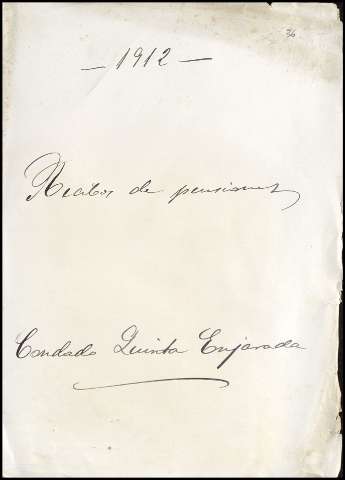 36
— 1912 —
Recibos de pensiones
Condado Quinta Enjarada